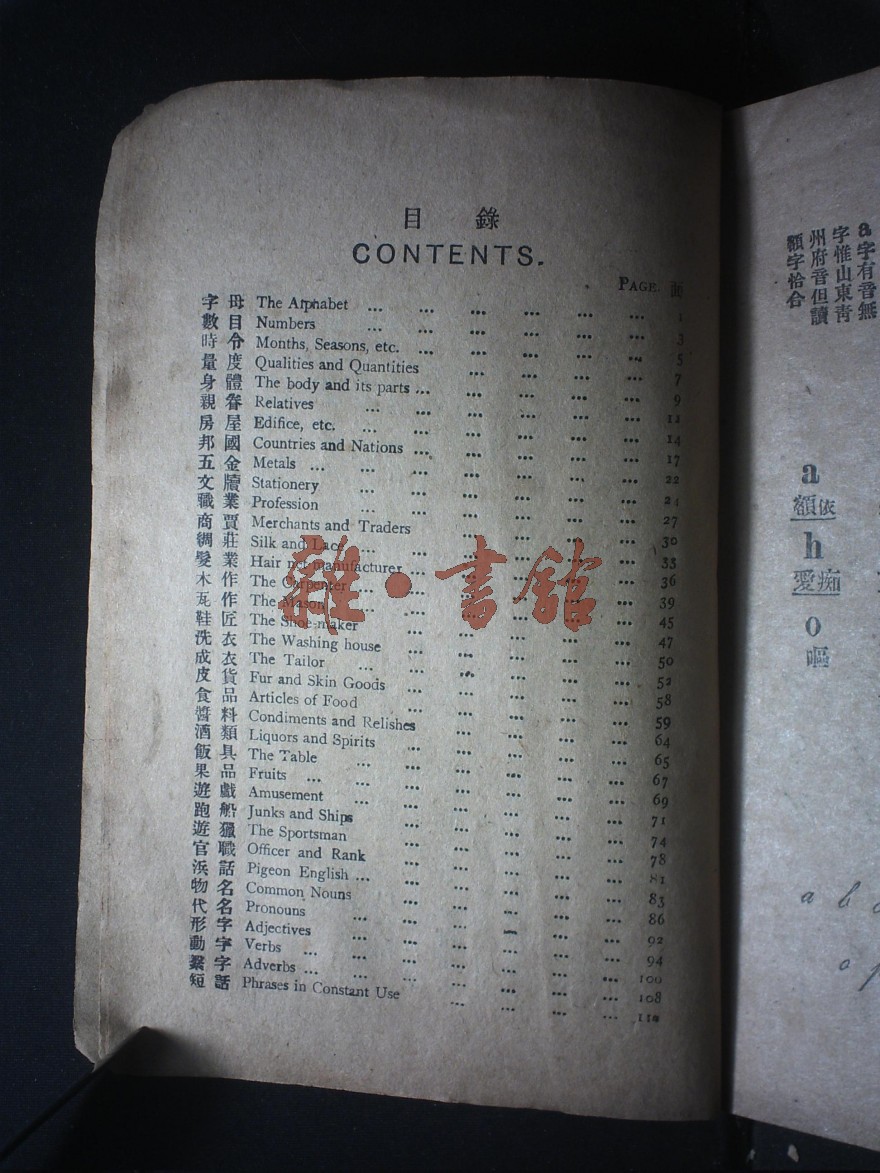 目 錄
CONTENTS.
PAGE. 面
字母 The Alphabet ... ... ... ... ... ... 1
數目 Numbers ... ... ... ... ... ... 3
時令 Months, Seasons, etc. ... ... ... ... ... 5
量度 Qualities and Quantities ... ... ... ... 7
身體 The body and its parts ... ... ... ... ... 9
親眷 Relatives ... ... ... ... ... ... 12
房屋 Edifice, etc. ... ... ... ... ... ... 14
邦國 Countries and Nations ... ... ... ... ... 17
五金 Metals ... ... ... ... ... ... ... 22
文牘 Stationery ... ... ... ... ... ... 24
職業 Profession ... ... ... ... ... ... 27
商賈 Merchants and Traders ... ... ... ... 30
綢莊 Silk and Lace ... ... ... ... ... ... 33
髮業 Hair net manufacturer ... ... ... ... ... 36
木作 The Carpenter ... ... ... ... ... ... 39
瓦作 The Mason ... ... ... ... ... ... 45
鞋匠 The Shoe-maker ... ... ... ... ... 47
洗衣 The Washing house ... ... ... ... ... 50
成衣 The Tailor ... ... ... ... ... ... 52
皮貨 Fur and Skin Goods ... ... ... ... ... 58
食品 Articles of Food ... ... ... ... ... 59
醬料 Condiments and Relishes ... ... ... ... 64
酒類 Liquors and Spirits ... ... ... ... ... 65
飯具 The Table ... ... ... ... ... ... 67
果品 Fruits ... ... ... ... ... ... ... 69
遊戲 Amusement ... ... ... ... ... ... 71
跑船 Junks and Ships ... ... ... ... ... 74
遊獵 The Sportsman ... ... ... ... ... 78
官職 Officer and Rank ... ... ... ... ... 81
浜話 Pigeon English ... ... ... ... ... ... 83
物名 Common Nouns ... ... ... ... ... 86
代名 Pronouns ... ... ... ... ... ... 92
形字 Adjectives ... ... ... ... ... ... 94
動字 Verbs ... ... ... ... ... ... ... 100
繫字 Adverbs ... ... ... ... ... ... ... 108
短話 Phrases in Constant Use ... ... ... ... 114
雜·書館
a字有音無
字惟山東靑
州府音但讀
額字恰合
a
額依
h
愛痴
o
嘔
a b
o p